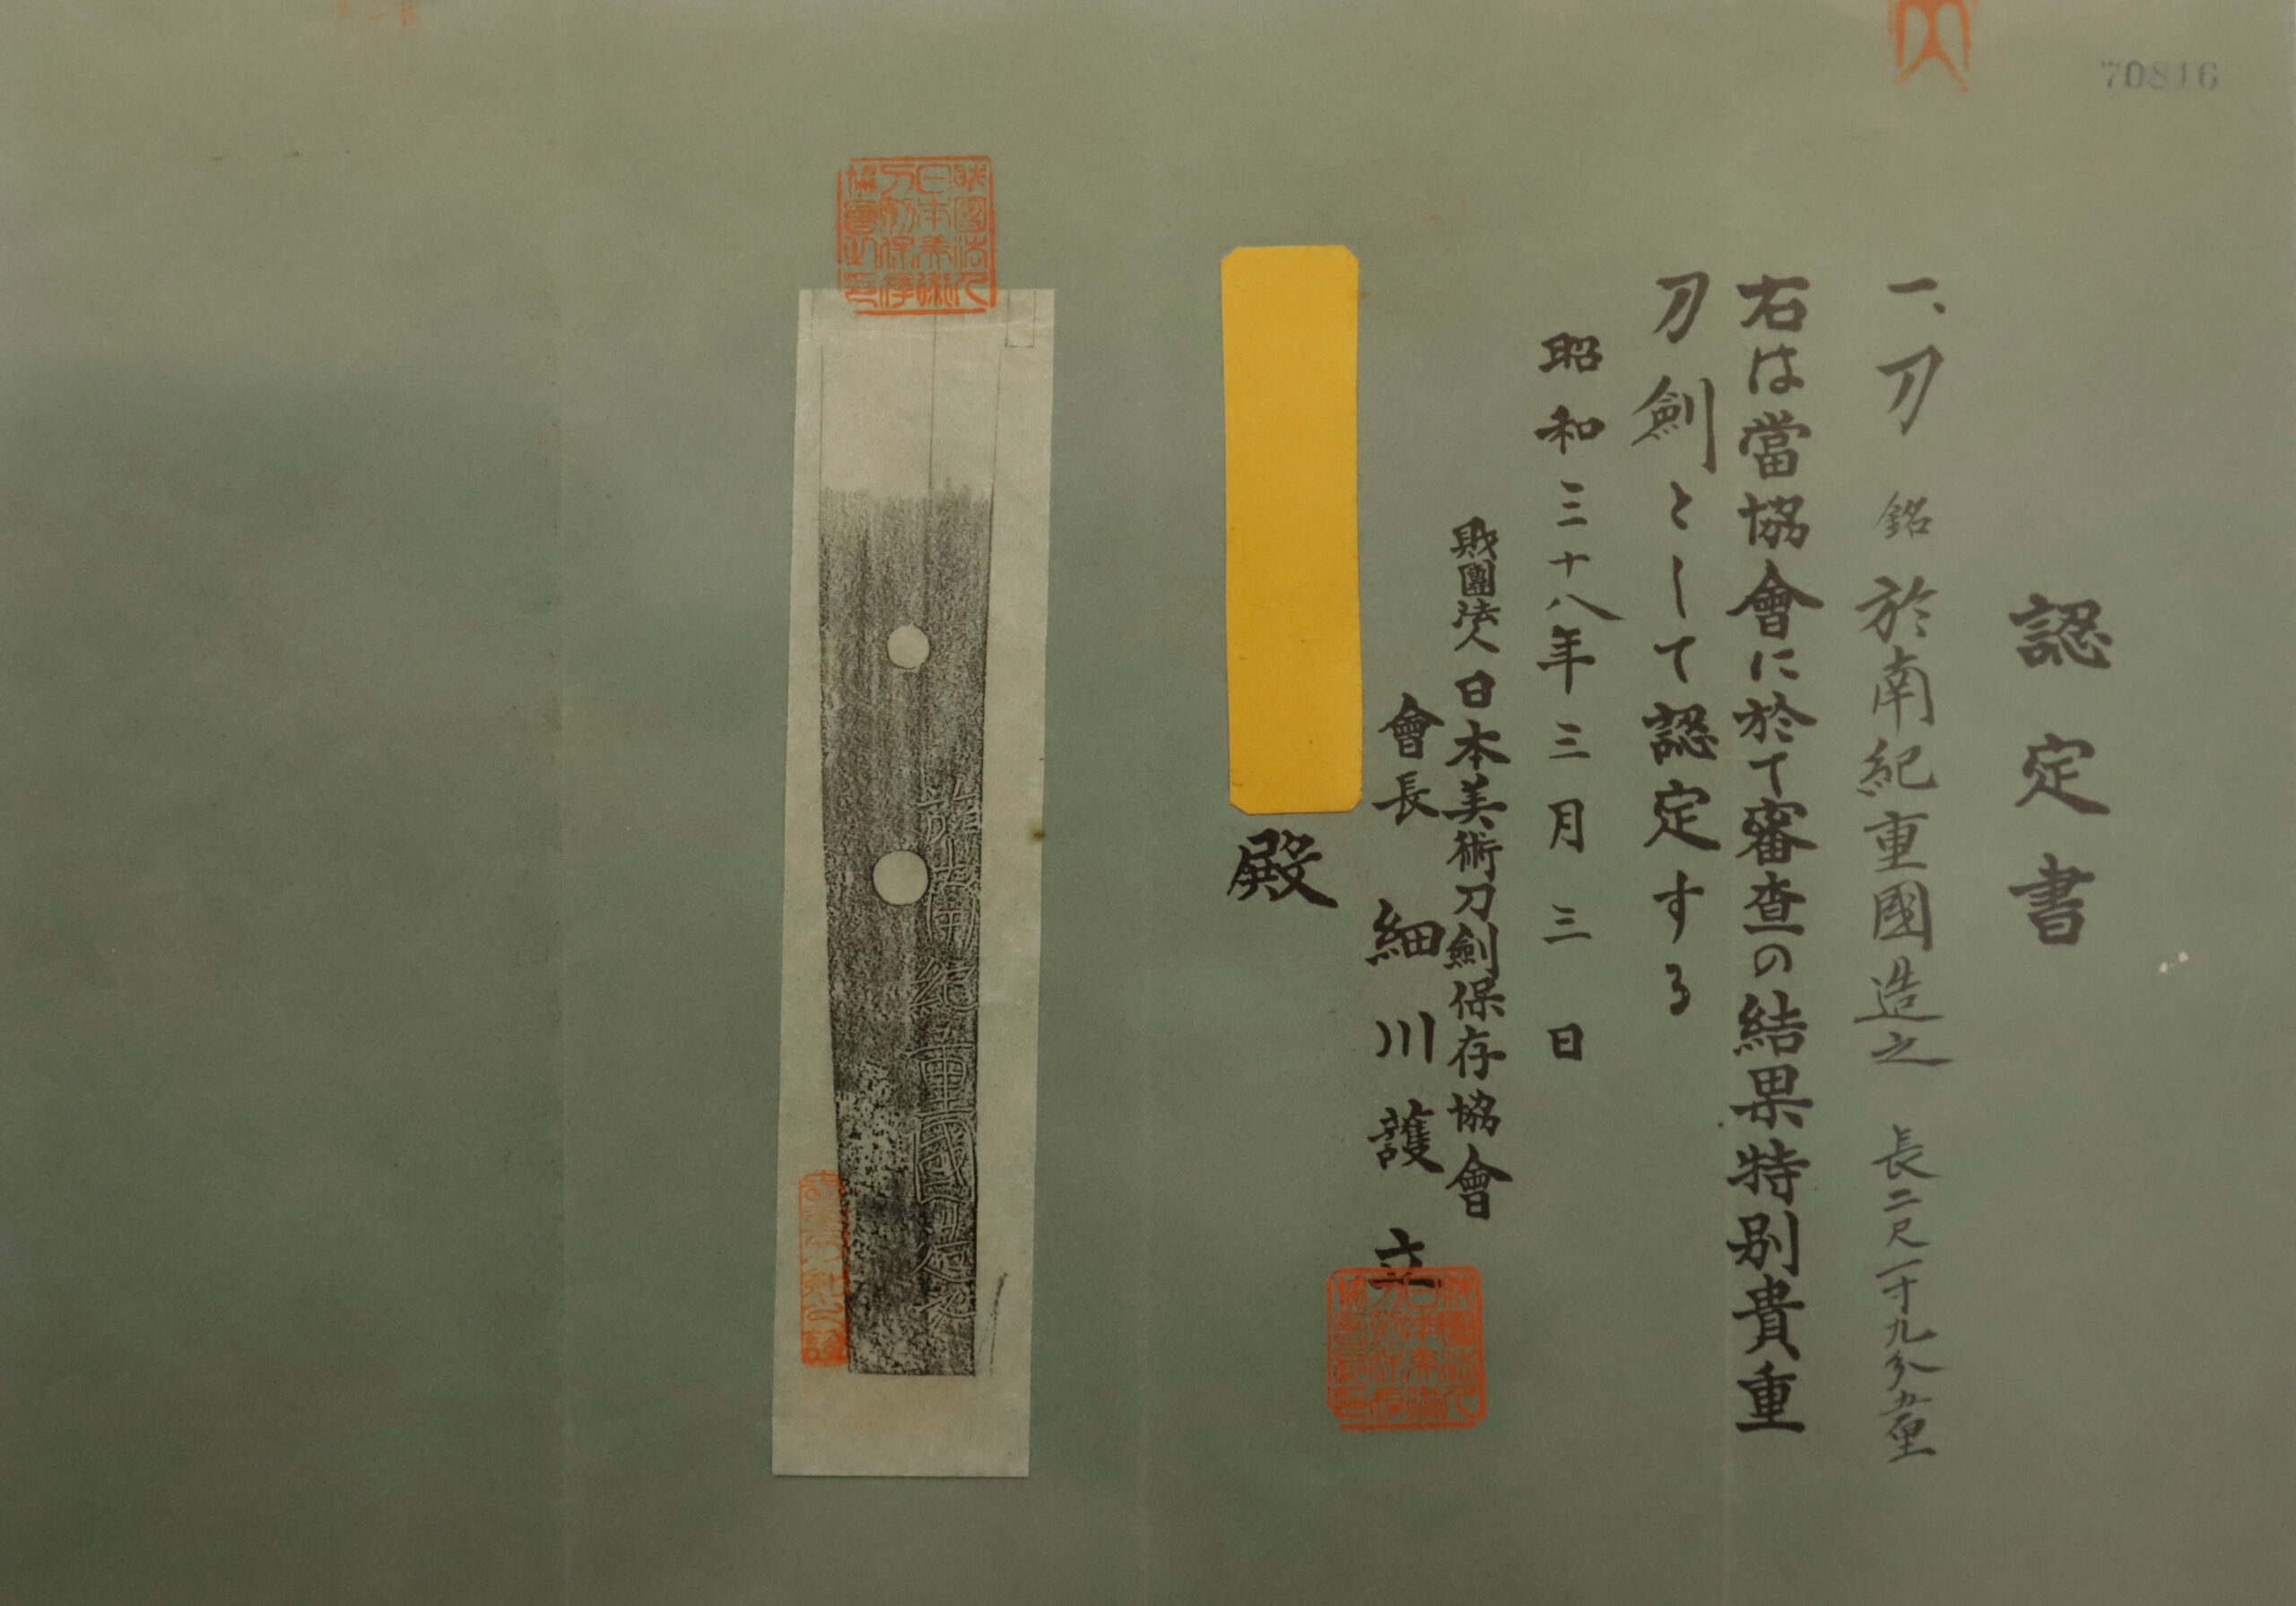 70816
認定書
一、刀 銘 於南紀重國造之 長二尺一寸九分五厘
右は當協會に於て審査の結果特別貴重
刀劍として認定する
昭和三十八年三月三日
財團法人日本美術刀劍保存協會
會長 細川護立
殿
財團法人
日本美術
刀劍保存
協會之印
於南紀重國造之